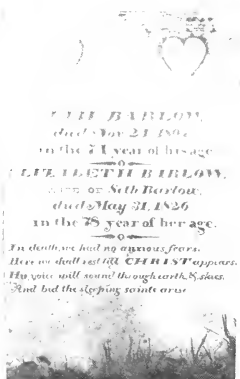 BARLOW,
died Nov 24
in the 71 year of his age
ELIZABETH BARLOW,
WIFE OF Seth Barlow,
died May 31, 1826
in the 78 year of her age.
In death, we had no anxious fears.
Here we shall rest till CHRIST appears.
His voice will sound through earth, & skies,
And bid the sleeping saints arise